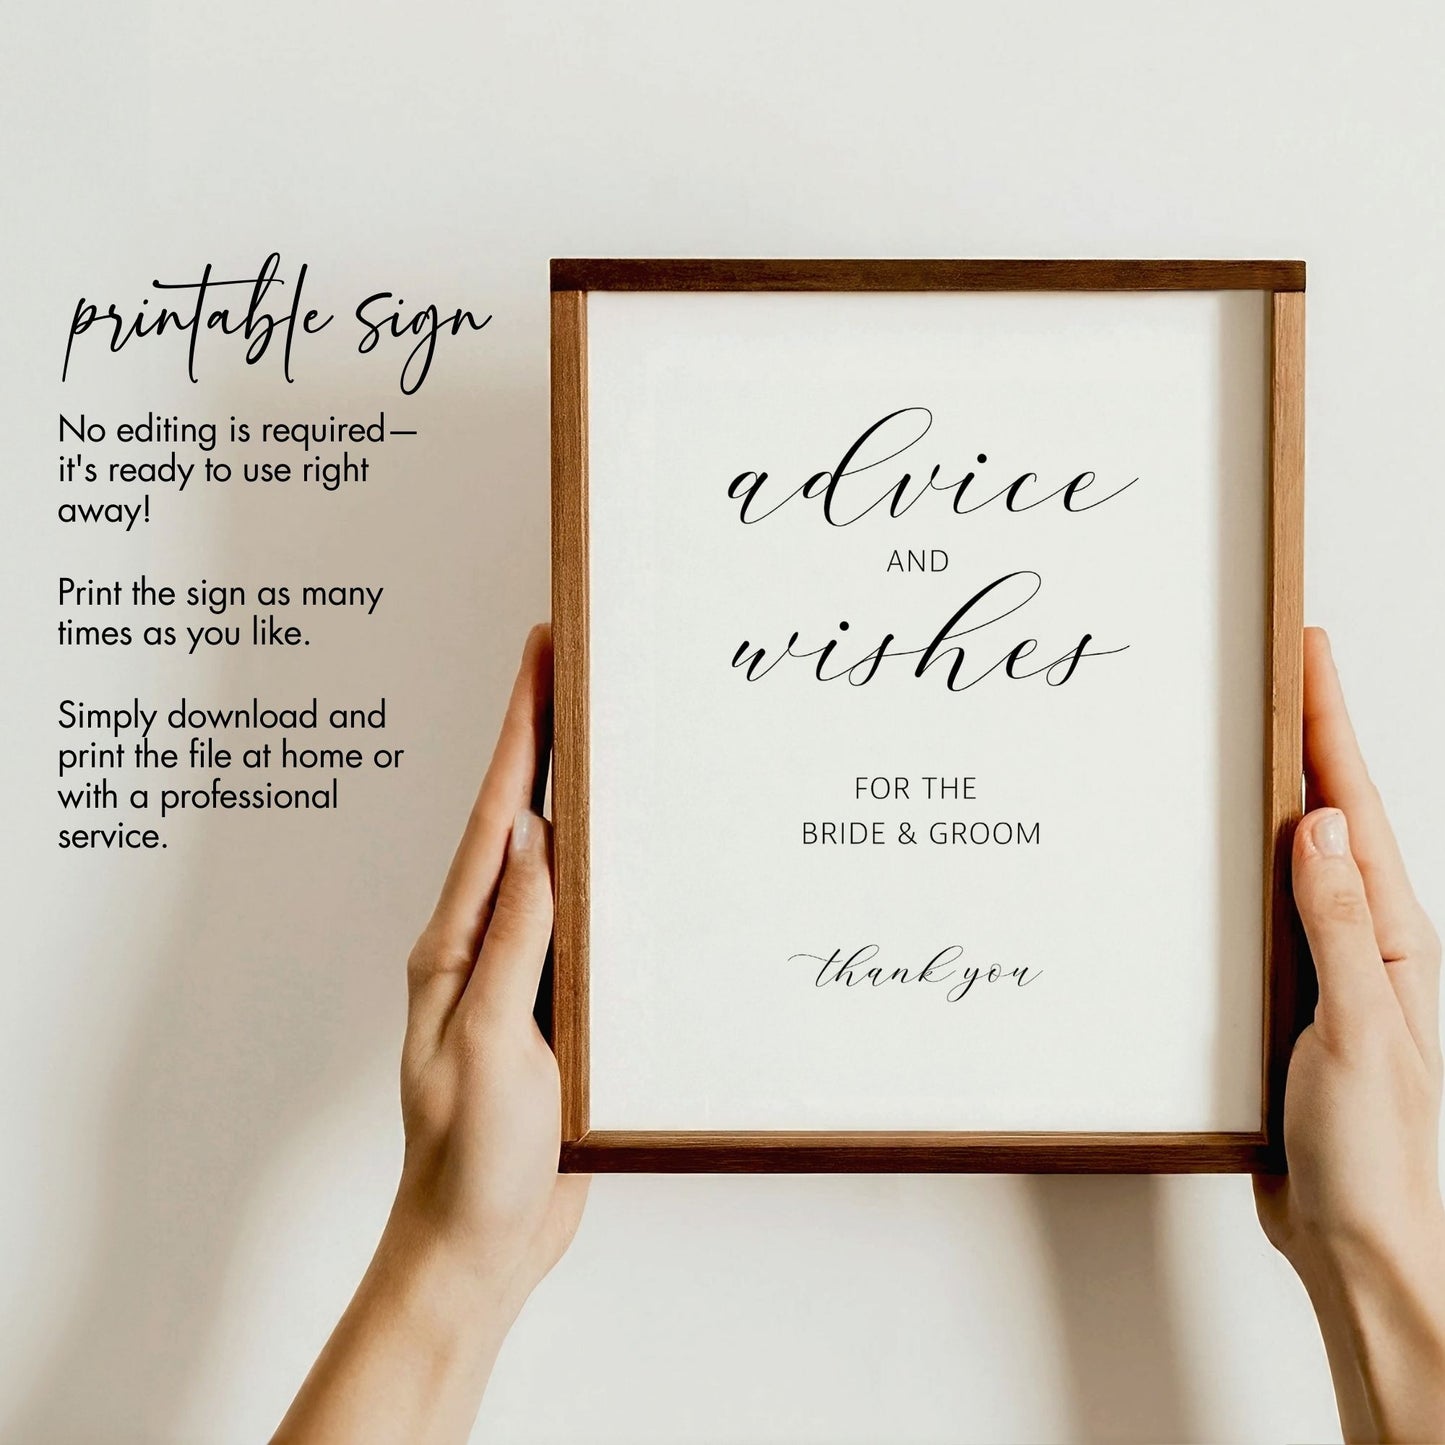 printable sign
No editing is required—
it's ready to use right
away!
Print the sign as many
times as you like.
Simply download and
print the file at home or
with a professional
service.
advice
AND
wishes
FOR THE
BRIDE & GROOM
thank you